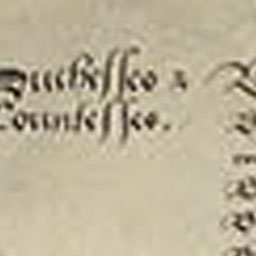 Duchesses &
Countesses.